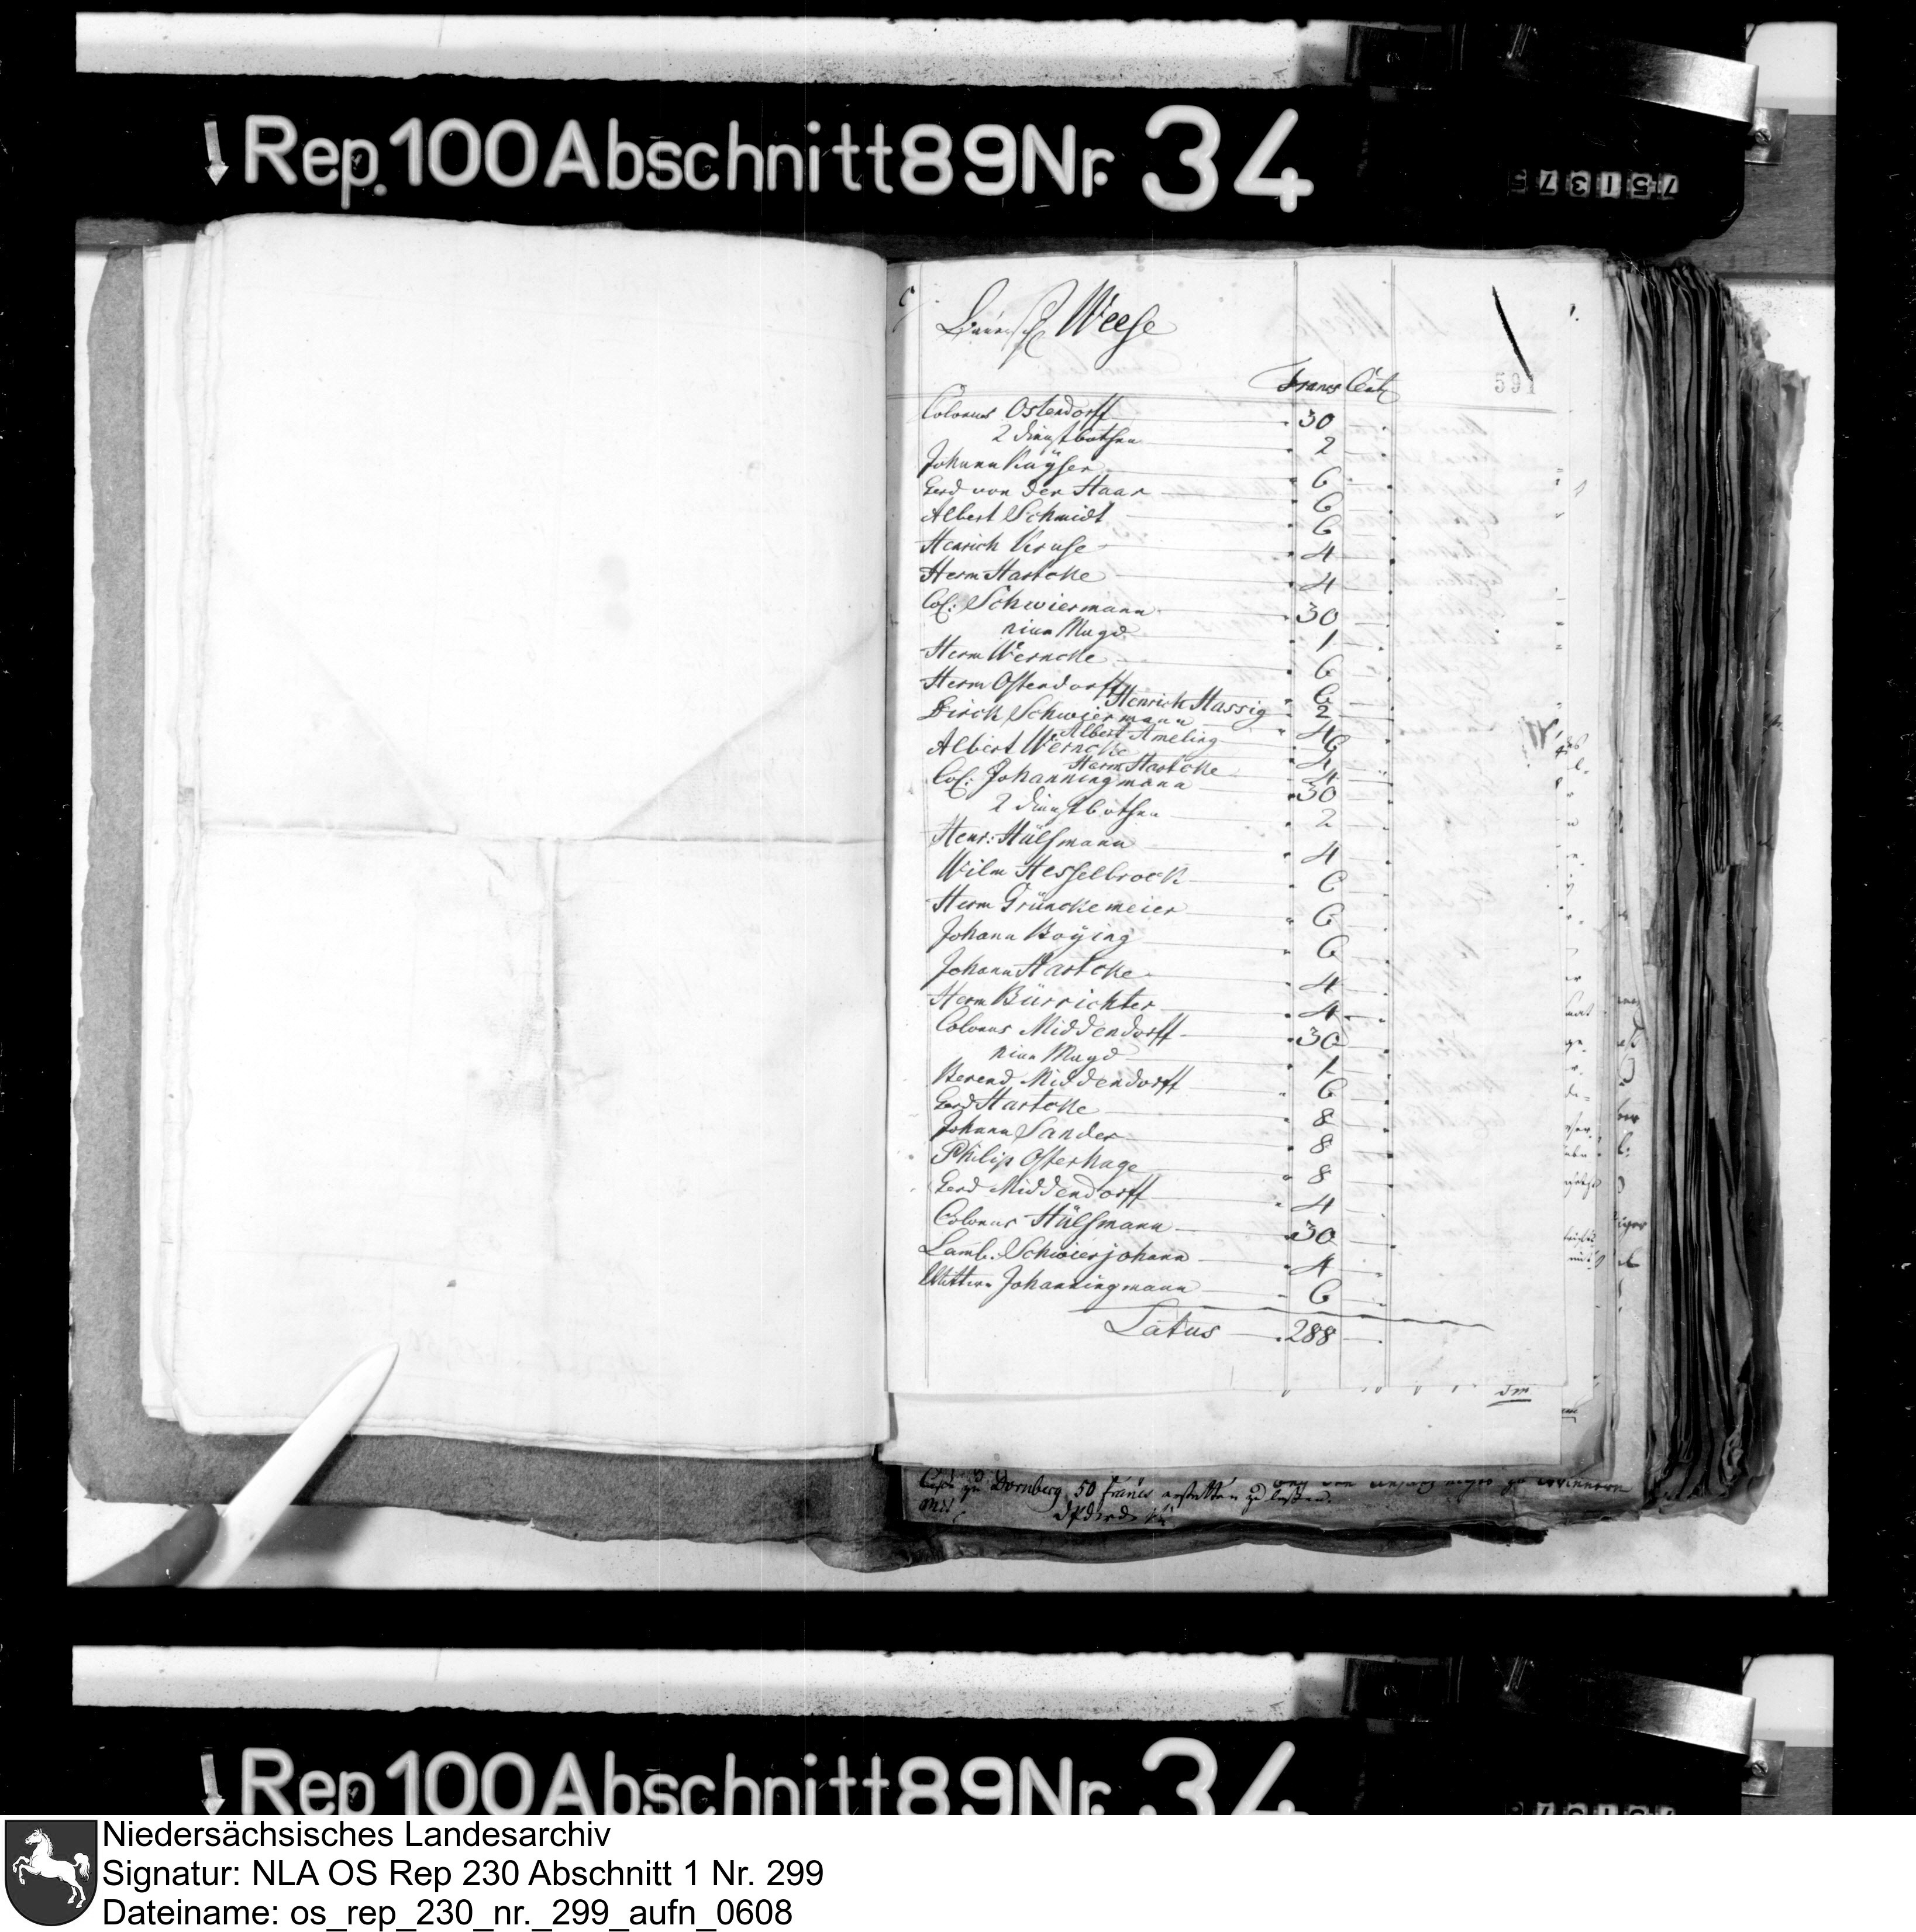 Rep. 100 Abschnitt 89 Nr. 34
751375
Baurschf Weese
Francs Cent
591
Colonus Ostendorff 30
2 dienstbothen 2
Johann Kayser 6
Gerd von der Haar 6
Albert Schmidt 6
Henrich Kruse 4
Herm Hartcke 4
Col: Schwiermann 30
eine Magd 1
Herm Werncke 6
Herm Ostendorff 6
Henrich Hassig 2
Dirck Schwiermann 4
Albert Ameling 6
Albert Werncke 4
Herm Hartcke 4
Col: Johanningmann 30
2 dienstbothen 2
Henr: Hülsmann 4
Wilm Hesselbrock 6
Herm Grünckemeier 6
Johann Boÿing 6
Johann Hartcke 4
Herm Bürrichter 4
Colonus Middendorff 30
eine Magd 1
Berend Middendorff 6
Gerd Hartcke 8
Johann Sander 8
Philip Osterhage 8
Gerd Middendorff 4
Colonus Hülsmann 30
Lamb. Schwierjohann 4
Wittwe Johanningmann 6
Latus 288
zu Dornberg 50 francs erstatten zu lassen.
Rep 100 Abschnitt 89 Nr. 34
Niedersächsisches Landesarchiv
Signatur: NLA OS Rep 230 Abschnitt 1 Nr. 299
Dateiname: os_rep_230_nr._299_aufn_0608